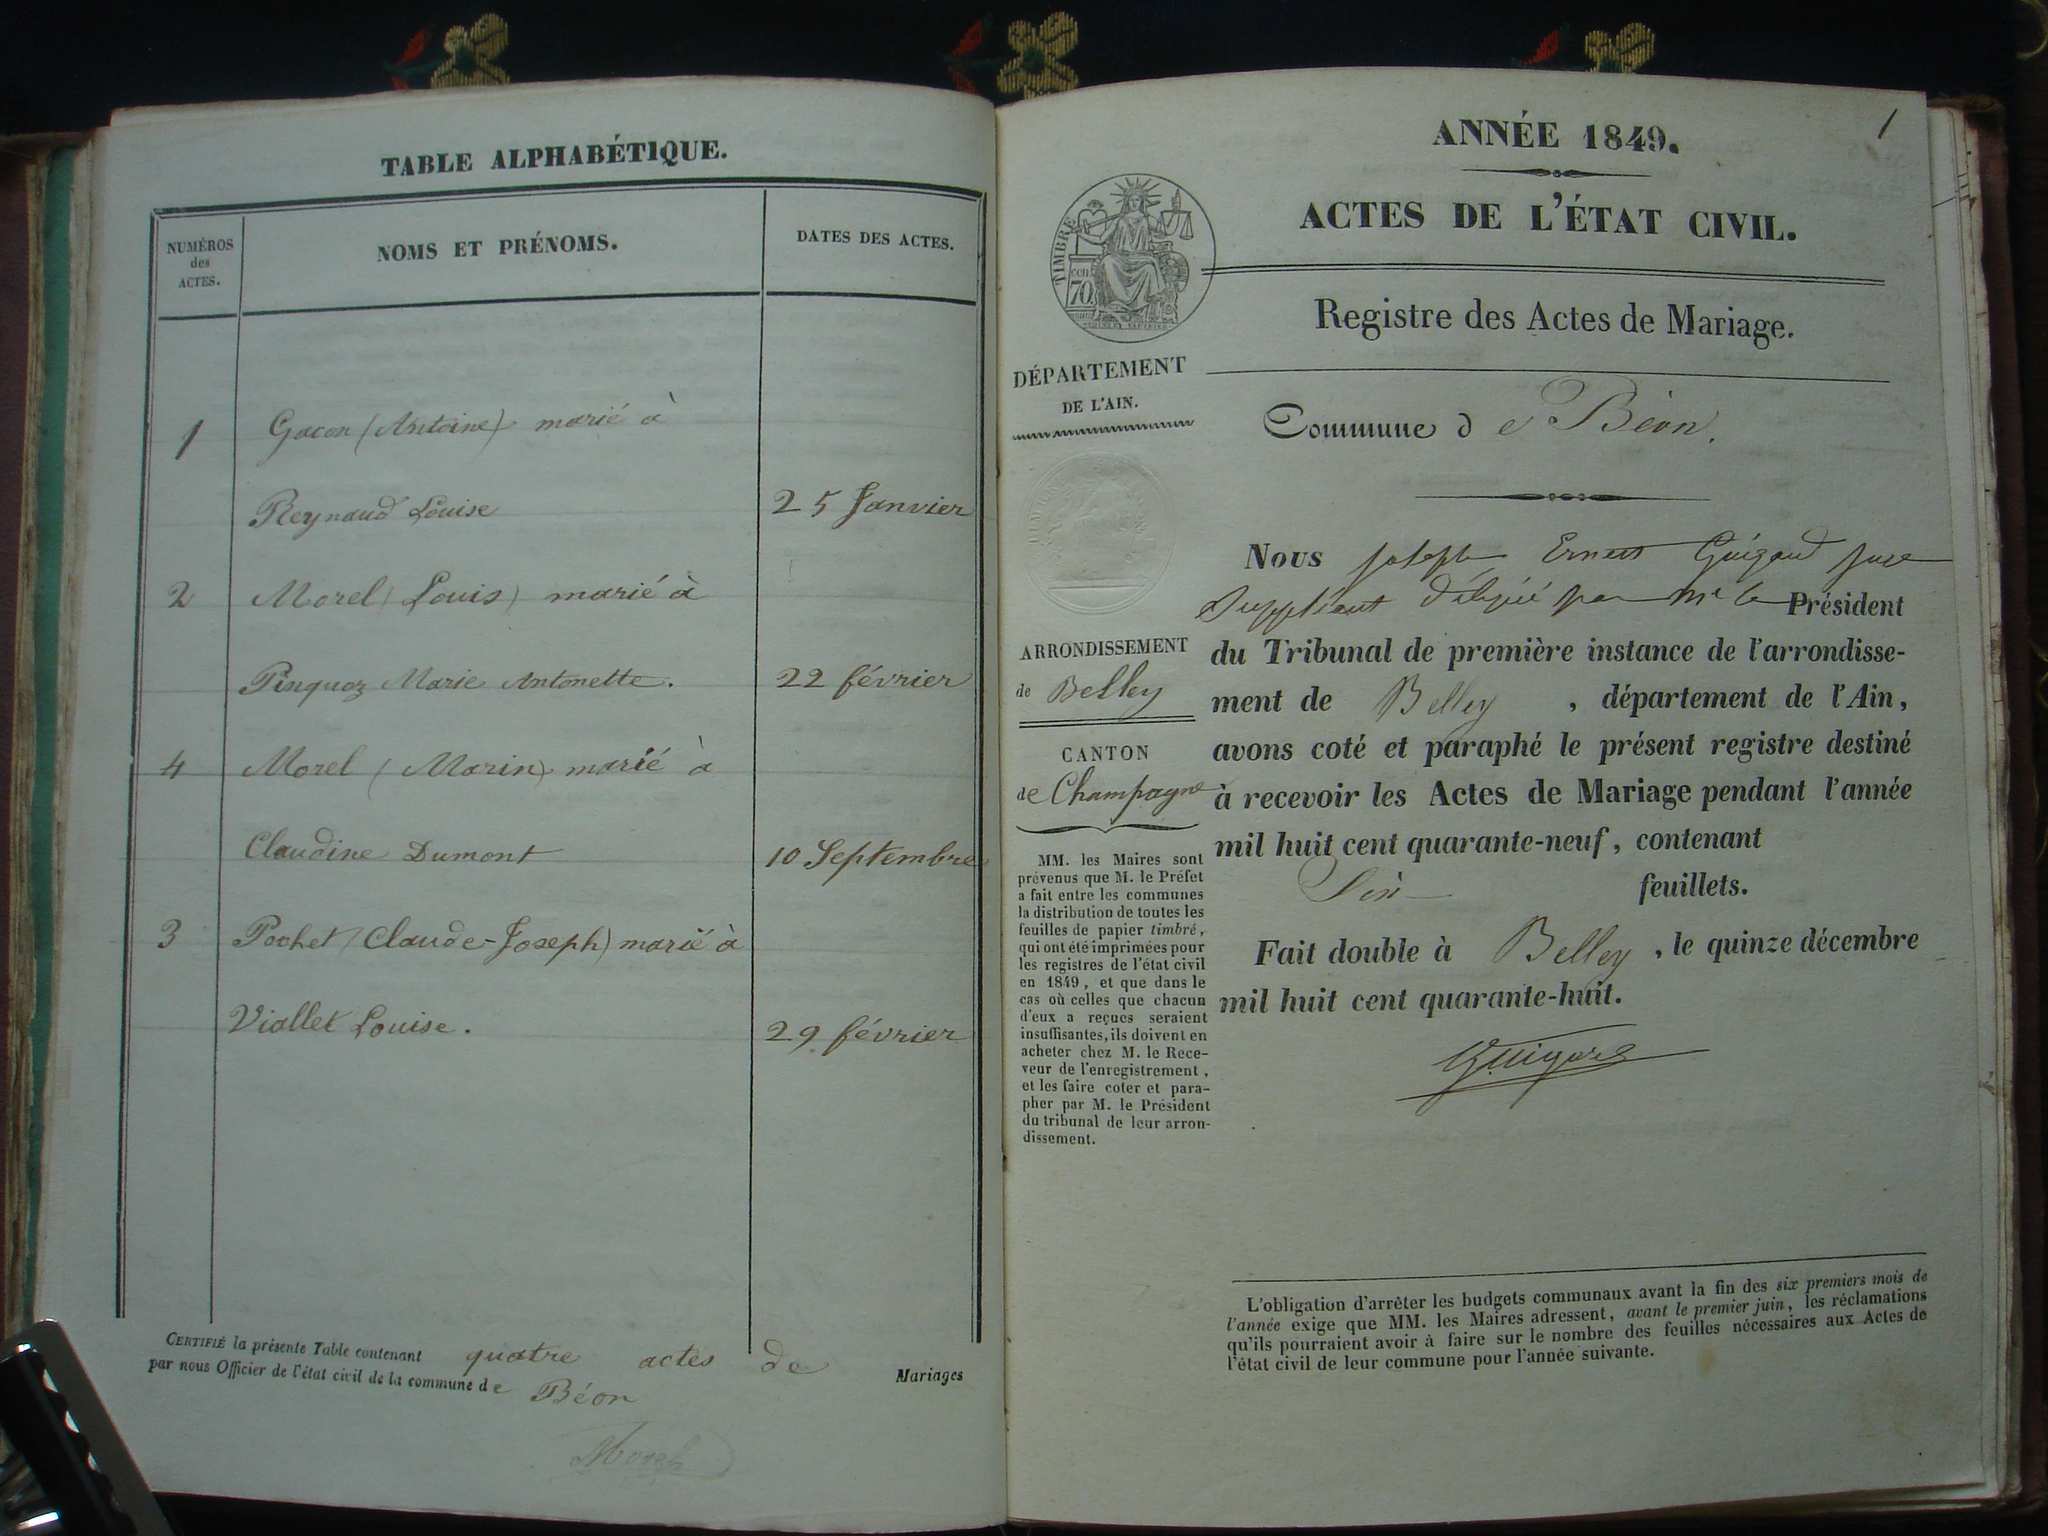 TABLE ALPHABÉTIQUE.
NUMÉROS
des
ACTES.
NOMS ET PRÉNOMS.
DATES DES ACTES.
1 Gacon (Antoine) marié à
Reynaud Louise 25 Janvier
2 Morel (Louis) marié à
Pinquoz Marie Antonette. 22 février
4 Morel (Marin) marié à
Claudine Dumont 10 Septembre
3 Pochet (Claude-Joseph) marié à
Viallet Louise. 29 février
CERTIFIÉ la présente Table contenant quatre actes de Mariages
par nous Officier de l'état civil de la commune de Béon
1
ANNÉE 1849.
ACTES DE L'ÉTAT CIVIL.
TIMBRE
70
Registre des Actes de Mariage.
DÉPARTEMENT
DE L'AIN.
Commune de Béon.
Nous Joseph Ernest Guigard Juge
Suppléant délégué par Mr le Président
du Tribunal de première instance de l'arrondisse-
ment de Belley, département de l'Ain,
avons coté et paraphé le présent registre destiné
à recevoir les Actes de Mariage pendant l'année
mil huit cent quarante-neuf, contenant
Six feuillets.
Fait double à Belley, le quinze décembre
mil huit cent quarante-huit.
Guigard
ARRONDISSEMENT
de Belley
CANTON
de Champagne
MM. les Maires sont
prévenus que M. le Préfet
a fait entre les communes
la distribution de toutes les
feuilles de papier timbré,
qui ont été imprimées pour
les registres de l'état civil
en 1849, et que dans le
cas où celles que chacun
d'eux a reçues seraient
insuffisantes, ils doivent en
acheter chez M. le Rece-
veur de l'enregistrement,
et les faire coter et para-
pher par M. le Président
du tribunal de leur arron-
dissement.
L'obligation d'arrêter les budgets communaux avant la fin des six premiers mois de
l'année exige que MM. les Maires adressent, avant le premier juin, les réclamations
qu'ils pourraient avoir à faire sur le nombre des feuilles nécessaires aux Actes de
l'état civil de leur commune pour l'année suivante.